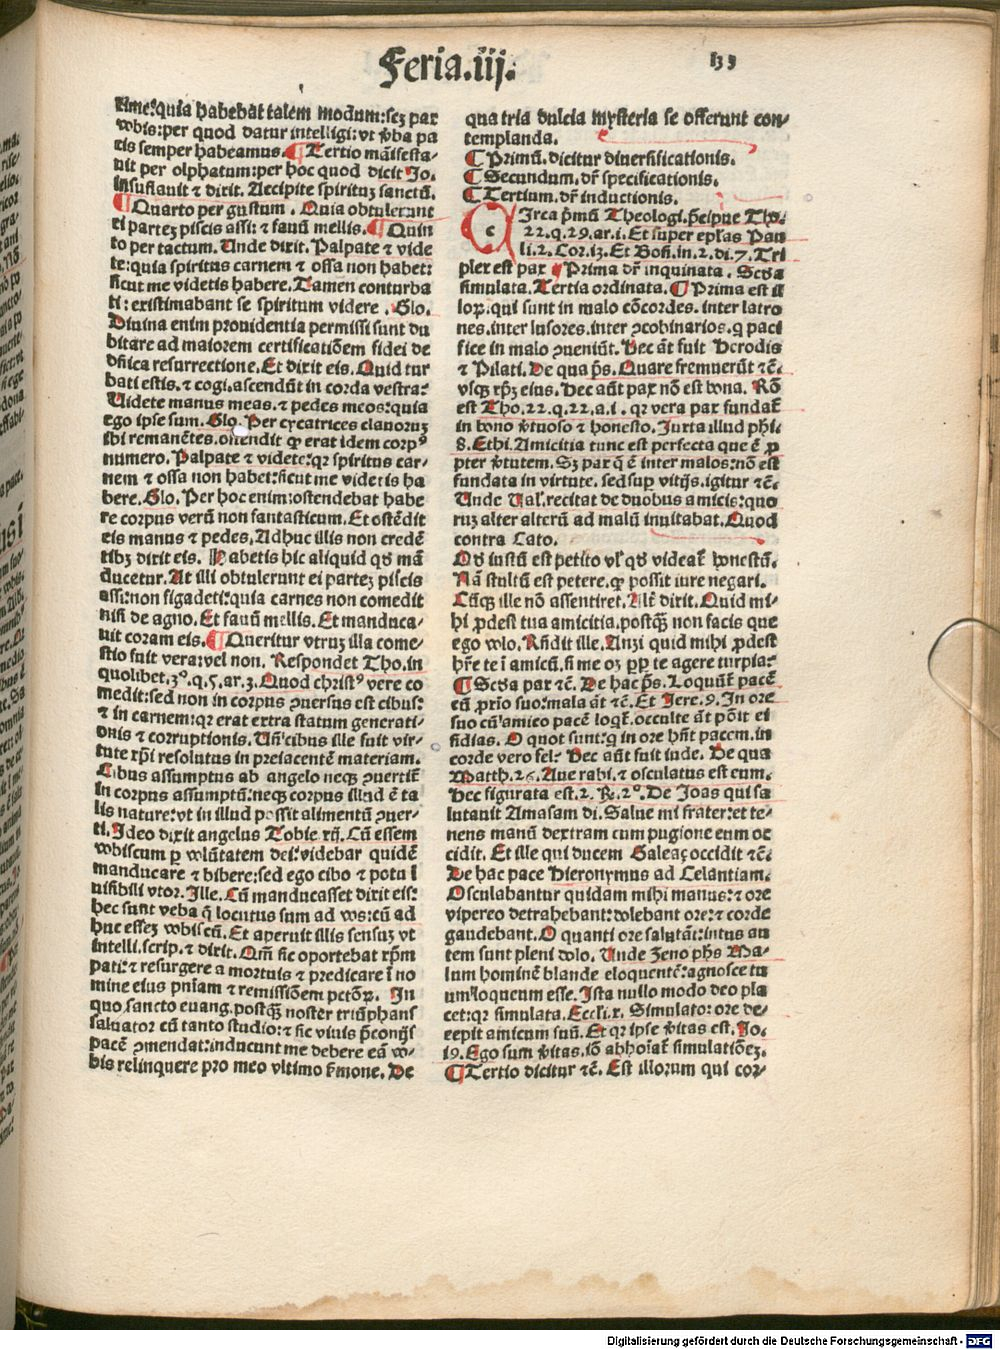 Feria.iij.
139
tune:quia habebat talem modum:scz pax
vobis:per quod datur intelligi:vt v̄ba pa
cis semper habeamus. ¶ Tertio māifesta-
uit per olphatum:per hoc quod dicit Jo.
Insuflauit ⁊ dixit. Accipite spirituʒ sanctū.
¶ Quarto per gustum. Quia obtulerunt
ei parteʒ piscis assi: ⁊ fauū mellis. ¶ Quin
to per tactum. Unde dixit. Palpate ⁊ vide
te:quia spiritus carnem ⁊ ossa non habet:
sicut me videtis habere. Tamen conturba
ti: existimabant se spiritum videre. Glo.
Diuina enim prouidentia permissi sunt du
bitare ad maiorem certificatiōem fidei de
dn̄ica resurrectione. Et dixit eis. Quid tur
bati estis. ⁊ cogi. ascendūt in corda vestra:
Uidete manus meas. ⁊ pedes meos: quia
ego ipse sum. Glo. Per cycatrices clauoruʒ
ibi remanētes. oñendit ꝙ erat idem corpꝰ
numero. Palpate ⁊ videte:qꝛ spiritus car-
nem ⁊ ossa non habet:sicut me videtis ha
bere. Glo. Per hoc enim:ostendebat habe
re corpus verū non fantasticum. Et ostēdit
eis manus ⁊ pedes, Adhuc illis non credē
tibꝫ dixit eis. Habetis hic aliquid qd̄ mā
ducetur. At illi obtulerunt ei parteʒ piscis
assi:non figadeti:quia carnes non comedit
nisi de agno. Et fauū mellis. Et manduca-
uit coram eis. ¶ Queritur vtruʒ illa come-
stio fuit vera:vel non. Respondet Tho. in
quolibet. 3º. q. 5. ar. 3. Quod christꝰ vere co
medit:sed non in corpus ꝯuersus est cibus:
⁊ in carnem:qꝛ erat extra statum generati-
onis ⁊ corruptionis. Uñ cibus ille fuit vir-
tute xp̄i resolutus in preiacentē materiam.
Cibus assumptus ab angelo neqꝫ ꝯuertit̄
in corpus assumptū:neqꝫ corpus illud ē ta
lis nature:vt in illud possit alimentū ꝯuer-
ti. Ideo dixit angelus Tobie xij. Cū essem
vobiscum ꝑ volūtatem dei:videbar quidē
manducare ⁊ bibere:sed ego cibo ⁊ potu i
uisibili vtor. Ille. Cū manducasset dixit eis:
hec sunt veba q̄ locutus sum ad vos:cū ad
huc esseʒ vobiscū. Et aperuit illis sensuʒ vt
intelli. scrip. ⁊ dixit. Qm̄ sic oportebat xp̄m
pati:⁊ resurgere a mortuis ⁊ predicare ī no
mine eius pn̄iam ⁊ remissiōem pctōꝝ. In
quo sancto euang. postqꝫ noster triūphans
saluator cū tanto studio:⁊ sic viuis p̄conijs
pacē ꝯmendat:inducunt me debere eā vo-
bis relinquere pro meo vltimo ẜmone. De
qua tria dulcia mysteria se offerunt con-
templanda.
¶ Primū. dicitur diuersificationis.
¶ Secundum. dr̄ specificationis.
¶ Tertium. dr̄ inductionis.
C Irca p̄mū Theologi. p̄cipue Tho.
22. q. 29. ar. i. Et super ep̄las Pau
li. 2. Cor. i3. Et Bon̄. in. 2. di. 7. Tri
plex est pax ¶ Prima dr̄ inquinata. Scd̄a
simulata. Tertia ordinata. ¶ Prima est il
loꝝ:qui sunt in malo cōcordes. inter latro
nes. inter lusores. inter ꝯcobinarios. q paci
fice in malo ꝯueniūt. Hec āt fuit Herodis
⁊ Pilati. De qua p̄s. Quare fremuerūt ⁊c̄.
vsqꝫ xp̄ʒ eius. Hec aūt pax nō est bona. Rō
est Tho. 22. q. 22. a. i. qꝛ vera pax fundat̄
in bono v̄tuoso ⁊ honesto. Juxta illud phi.
8. Ethi. Amicitia tunc est perfecta que ē ꝓ
pter v̄tutem. Sʒ pax q̄ ē inter malos:nō est
fundata in virtute. sed suꝑ vitijs. igitur ⁊c̄.
Unde Ual̓. recitat de duobus amicis: quo
ruʒ alter alterū ad malū inuitabat. Quod
contra Cato.
Qd̄ iustū est petito vl̓ qd̄ videat̄ honestū.
Nā stultū est petere. ꝙ possit iure negari.
Cūqꝫ ille nō assentiret. Alt̄ dixit. Quid mi-
hi ꝓdest tua amicitia. postqꝫ non facis que
ego volo. Rn̄dit ille. Anzi quid mihi ꝓdest
hr̄e te ī amicū. si me oʒ ꝓp te agere turpia:
¶ Scd̄a pax ⁊c̄. De hac p̄s. Loquūt̄ pacē
cū ꝓxīo suo:mala āt ⁊c̄. Et Jere. 9. In ore
suo cū amico pacē loqt̄. occulte āt pōit ei
fidias. O quot sunt:q in ore hn̄t pacem. in
corde vero fel: Hec aūt fuit iude. De qua
Matth. 26. Aue rabi. ⁊ osculatus est eum.
Hec figurata est. 2. R̄. 2º. De Joas qui sa
lutauit Amasam di. Salue mi frater:et te-
nens manū dextram cum pugione eum oc
cidit. Et ille qui ducem Galeaç occidit ⁊c̄.
De hac pace Hieronymus ad Celantiam.
Osculabantur quidam mihi manus:⁊ ore
vipereo detrahebant:dolebant ore:⁊ corde
gaudebant. O quanti ore salutāt:intus au
tem sunt pleni dolo. Unde Zeno phs̄ Ma-
lum hominē blande eloquentē:agnosce tu
um loqueum esse. Ista nullo modo deo pla
cet:qꝛ simulata. Eccli. x. Simulator ore de-
cepit amicum suū. Et qꝛ ipse v̄itas est. Jo.
i9. Ego sum v̄itas. iō abhoīat̄ simulatiōeʒ.
¶ Tertio dicitur ⁊c̄. Est illorum qui cor-
Digitalisierung gefördert durch die Deutsche Forschungsgemeinschaft - DFG